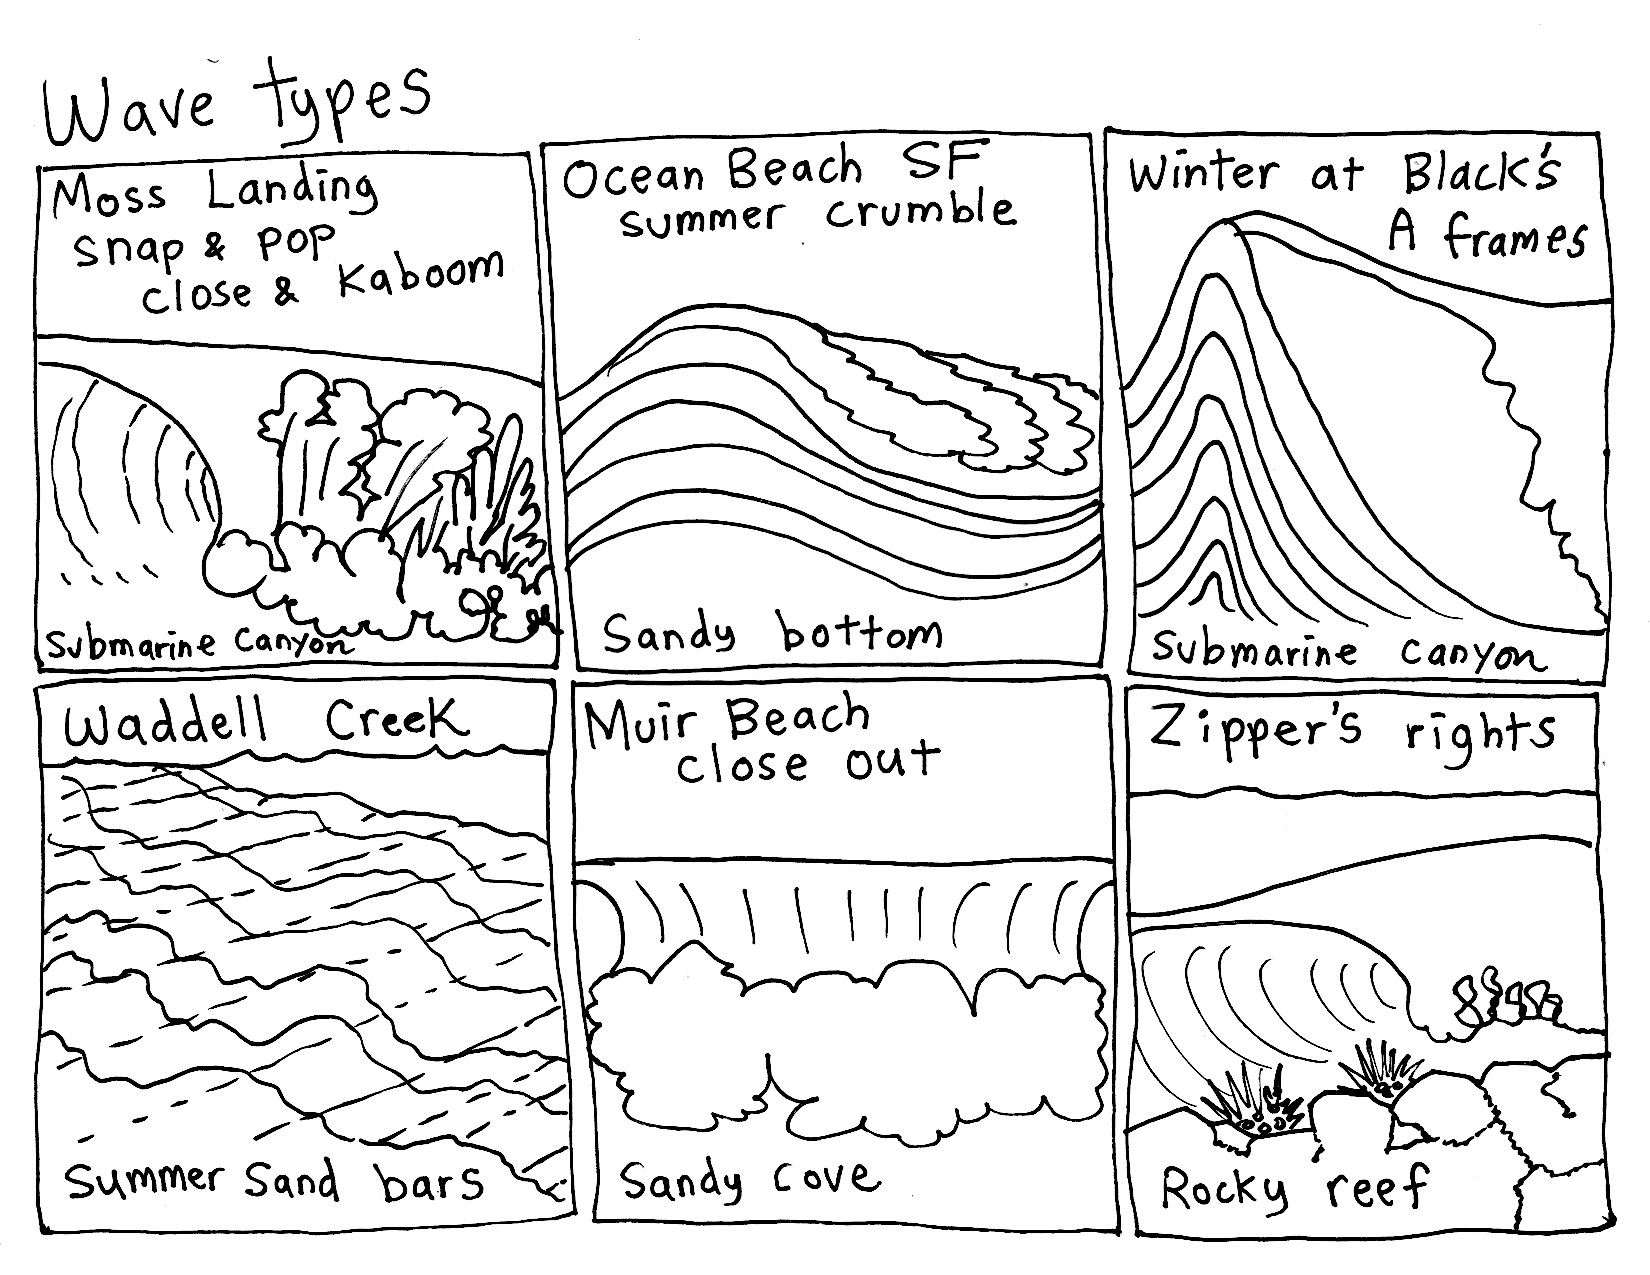 Wave types
Moss Landing
snap & pop
close & Kaboom
Submarine Canyon
Ocean Beach SF
summer crumble
Sandy bottom
Winter at Black's
A frames
Submarine Canyon
Waddell Creek
Summer Sand bars
Muir Beach
close out
Sandy cove
Zipper's rights
Rocky reef